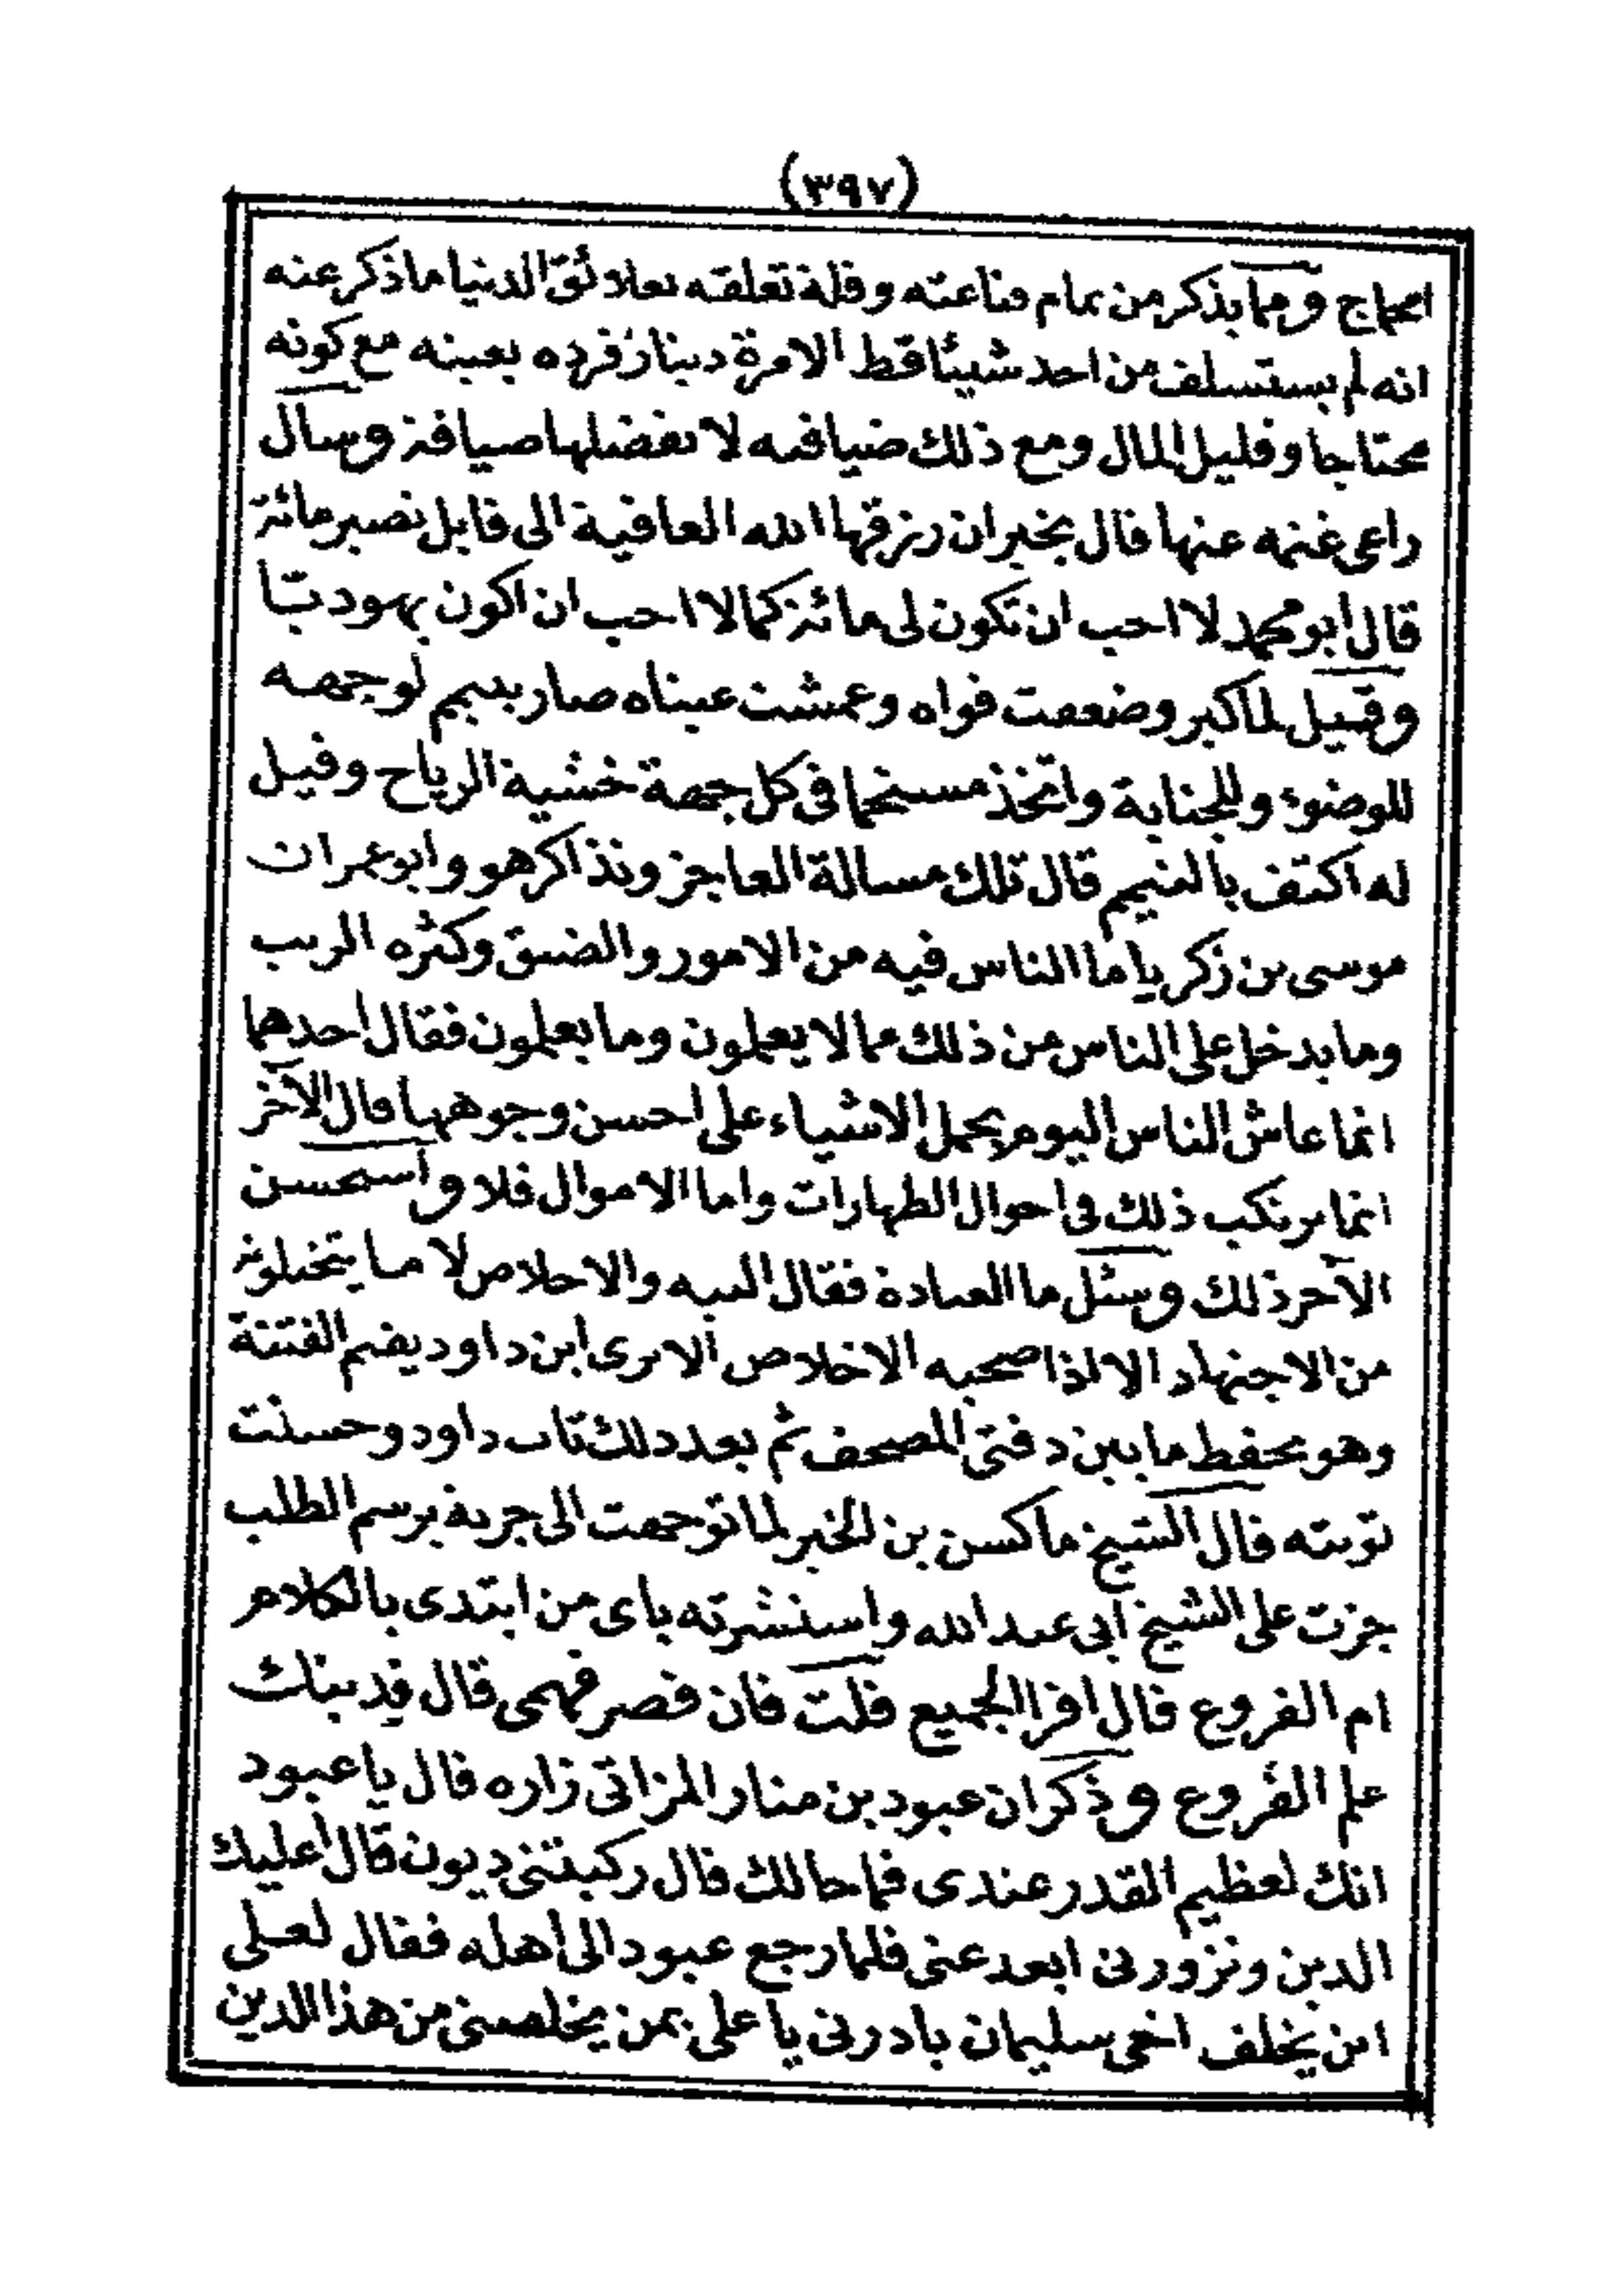 (٣٩٧)
الحجاج ومما يذكر من تمام قناعته وقلة تعلقه بعلائق الدنيا ما ذكر عنه
انه لم يستسلف من احد شيئا قط الا مرة دينارا فرده بعينه مع كونه
محتاجا وقليل المال ومع ذلك ضيافته لا تفضلها ضيافة وسال
راعى غنمه عنها قال بخير ان رزقها الله العافية الى قابل تصير مائة
قال ابو محمد لا احب ان تكون لى مائة كما لا احب ان اكون يهوديا
وقيل لما كبر وضعفت قواه وعمشت عيناه صار يتيمم لوجهه
للوضوء وللجنابة واتخذ مستحما فى كل جهة خشية الرياح وقيل
له اكتف بالتيمم قال تلك مسالة العاجز وتذاكر هو وابو عمران
موسى بن زكرياء ما الناس فيه من الامور والضيق وكثره الريب
وما يدخل على الناس من ذلك مما لا يعلمون وما يعلمون فقال احدهما
انما عاش الناس اليوم بحمل الاشياء على احسن وجوهها قال الآخر
انما يرتكب ذلك فى احوال الطهارات واما الاموال فلا واستحسن
الآخر ذلك وسئل ما العبادة فقال النيه والاخلاص لا ما يتخيلونه
من الاجتهاد الا اذا صحبه الاخلاص الا ترى ابن داود يضم الفتنة
وهو يحفظ ما بين دفتى المصحف ثم بعد ذلك تاب داود وحسنت
توبته قال الشيخ ماكسن بن الخير لما توجهت الى جربة برسم الطلب
جزت على الشيخ ابى عبد الله واستشرته باى من ابتدى بالكلام
ام الفروع قال اقرا الجميع قلت فان قصر فهمى قال فدينك
علم الفروع وذكر ان عبود بن منار المزاتى زاره قال يا عبود
انك لعظيم القدر عندى فما حالك قال ركبتنى ديون قال اعليك
الدين وتزورنى ابعد عنى فلما رجع عبود الى اهله فقال لعلى
ابن يخلف اخى سليمان بادرنى يا على بمن يخلصنى من هذا الدين